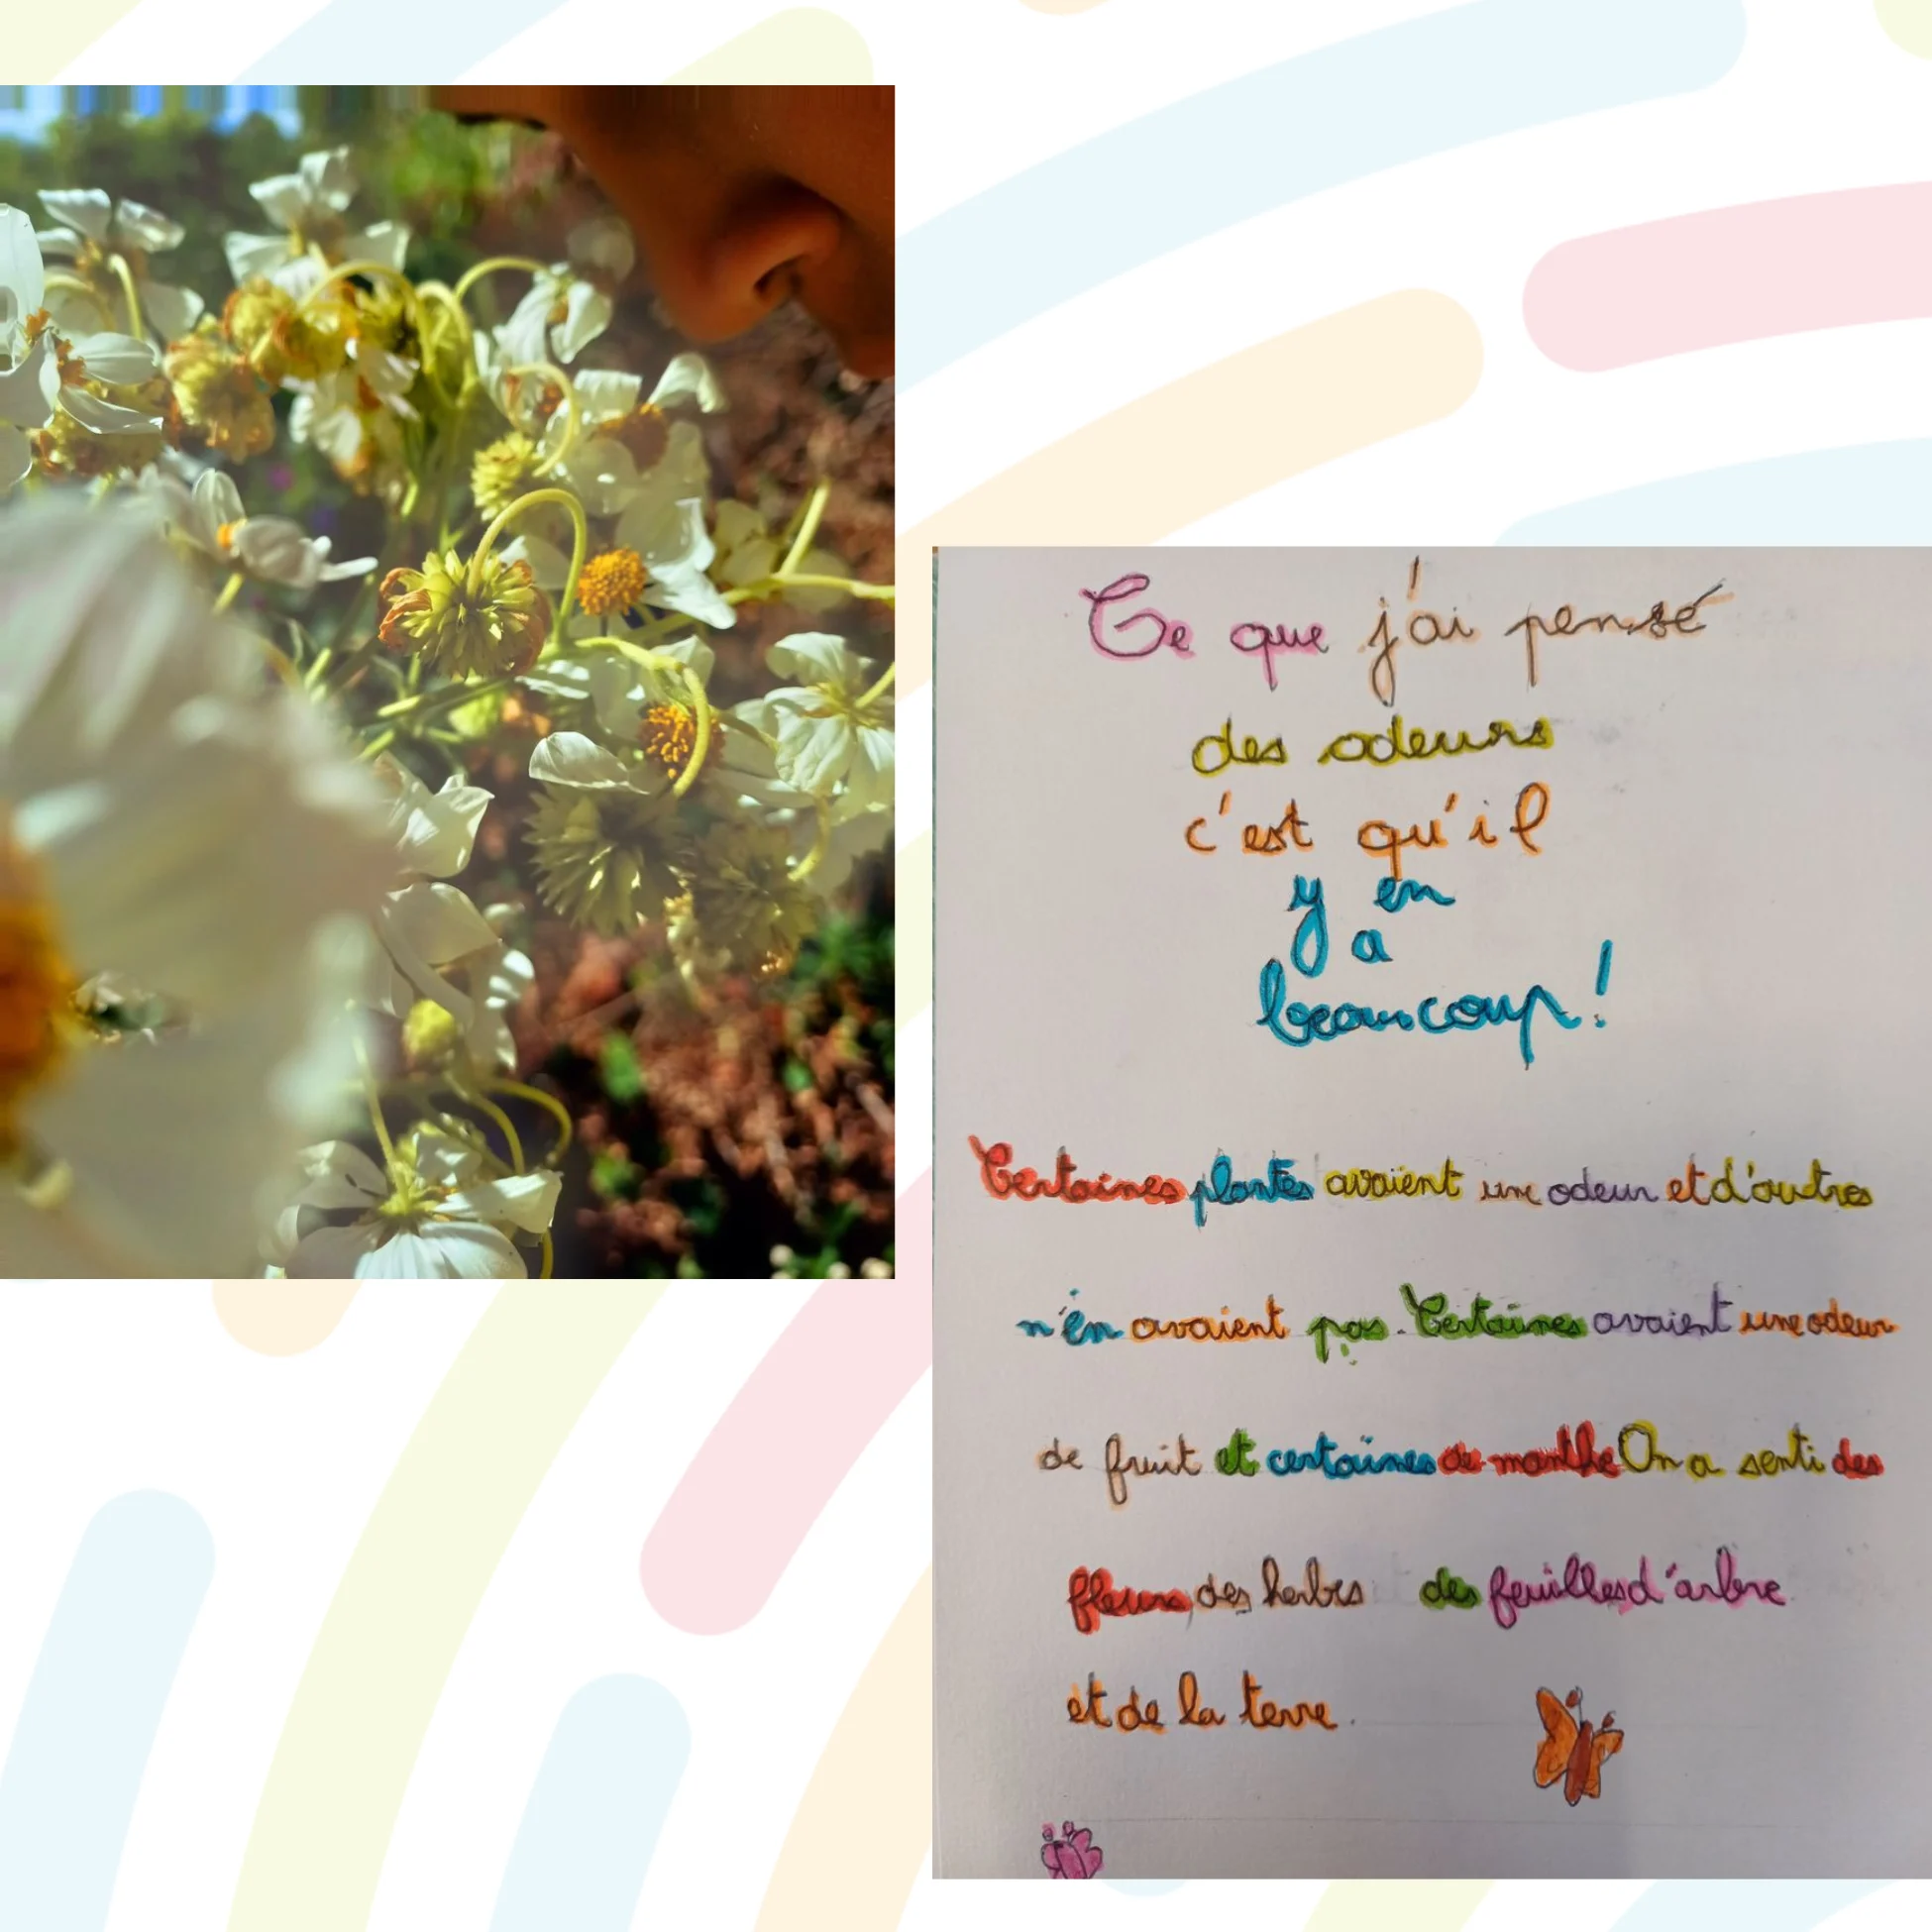 Ce que j'ai pensé
des odeurs
c'est qu'il
y en
a
beaucoup!
Certaines plantes avaient une odeur et d'autres
n'en avaient pas. Certaines avaient une odeur
de fruit et certaines de manthe On a senti des
fleurs, des herbes des feuilles d'arbre
et de la terre.